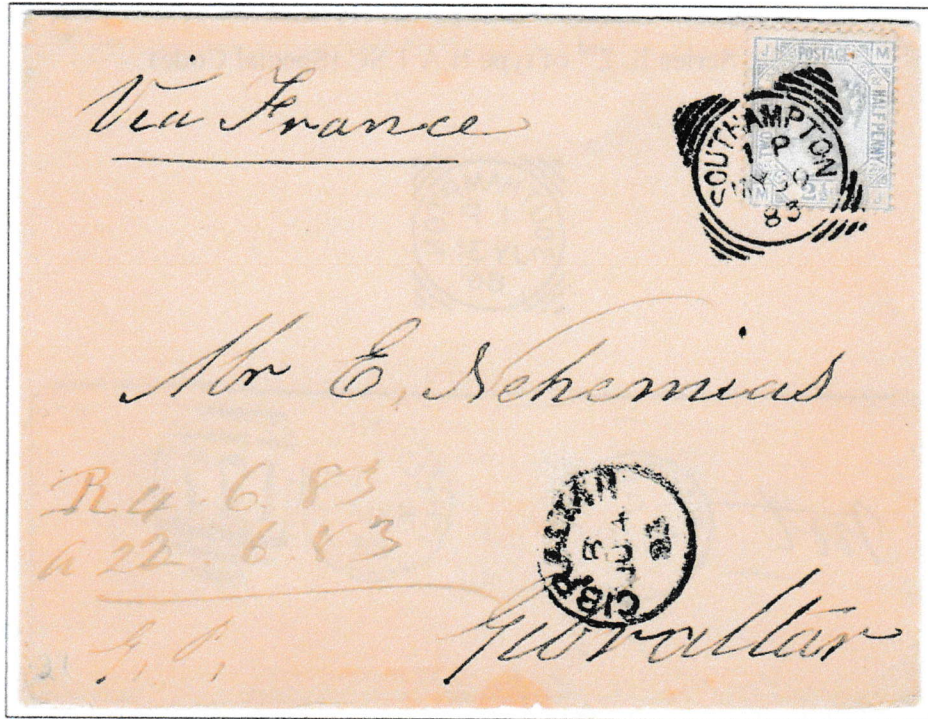 Via France
J POSTAGE M
HALFPENNY
M 2½ J
SOUTHAMPTON
1 P
MY 30
83
Mr E. Nehemias
R 4 . 6 . 83
a 22 . 6 83
G. P.
GIBRALTAR
B
JU 4
83
Gibraltar